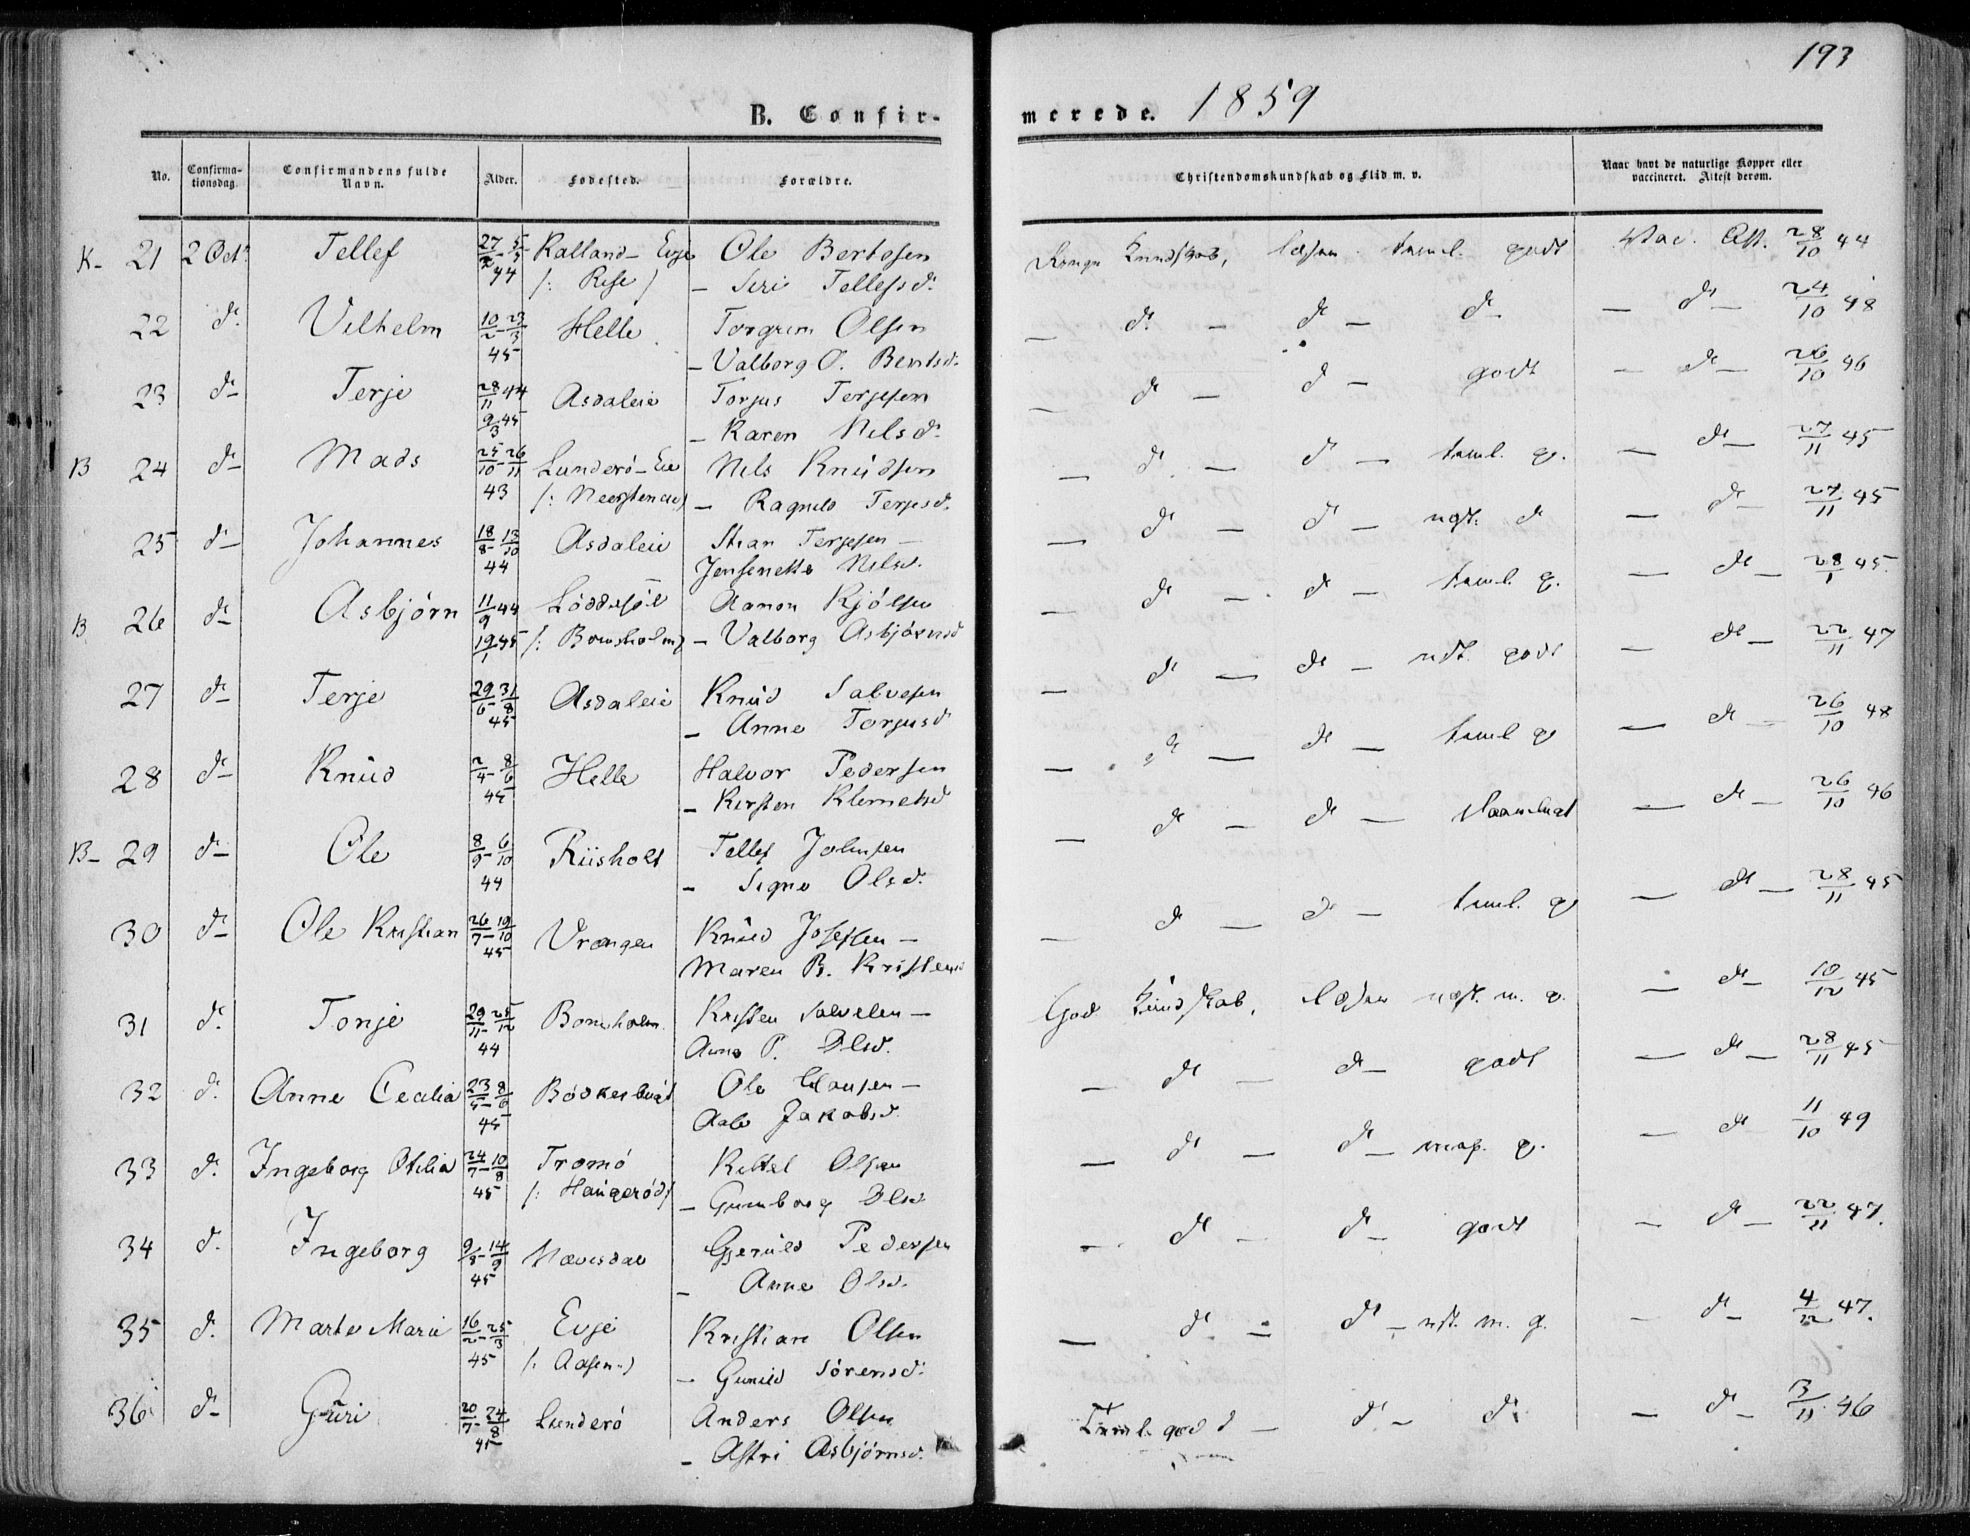 193
B. Confir-
merede. 1859
No.
Confirma-
tionsdag.
Confirmandens fulde
Navn.
Alder.
Fødested.
Forældre.
Christendomskundskab og Flid m. v.
Naar havt de naturlige Kopper eller
vaccineret. Attest derom.
K- 21 2 Oct. Tellef 27 44 Kalland- Evje Ole Bertosen
/: Rise / – Siri Tellefsd. Kundskab, taml. godt Vac. Att. 28/10 44
22 d. Vilhelm 10/2-23/3 45 Helle Torgrim Olsen
– Valborg O. Berntsd. – d. – d – d – – d – 24/10 48
23 d– Terje 28/11 44 9/3 45 Asdaleie Torjus Terjesen
– Karen Nilsd. – d – d – godt – d – 26/10 46
B 24 d– Mads 25/10-26/11 43 Lunderö – Nils Knudsen
– Ragnild Terjesd. – d – d – taml. g. – d – 27/11 45
25 d– Johannes 18/8-13/10 44 Asdaleie Stian Terjesen –
Jensenette Nilsd. – d – d – ngt. d – d – 27/11 45
B 26 d– Asbjørn 11/9 44 19/1 45 Løddesøl Aamon Kjølsen
/: Bomsholm / – Valborg Asbjørnsd – d – d – taml. g. – d – 28/1 45.
27 d– Terje 29/6-31/8 45 Asdaleie Knud Salvesen
– Anne Torjusd – d – d – ndt. godt – d – 22/11 47
28 d– Knud 8/6 45 Helle Halvor Pedersen
– Kirsten Klemetsd – d – d – taml g – d – 26/10 48
B– 29 d– Ole 8/9-6/10 44 Riisholt Tellef Johnsen
– Signe Olsd. – d – d – – d – 26/10 46
30 d– Ole Kristian 26/7-19/10 45 Vrangen Knud Josefsen –
Maren B. Kristens – d – d – taml. g – d – 28/11 45
31 d. Tonje 29/11-25/12 44 Bomsholm. Kristen Salvesen –
Anne P. Olsd. God Kundskab, ngt. m. g. – d – 10/12 45
32 d. Anne Cecilia 23/5-8/6 45 Bødkerbugt Ole Hansen –
Jakobsd. – d – d – godt – d – 28/11 45
33 d. Ingeborg Otilia 24/7-10/8 45 Tromö Kittel Olsen
/: Haugerød / – Gunborg Olsd – d – d – g. – d 11/10 49
34 d. Ingeborg 9/8-14/9 45 Nævesdal Gjeruld Pedersen
– Anne Olsd. – d – d – godt – d – 22/11 47.
35 d. Marte Marie 16/2-25/3 45 Evje Kristian Olsen
/: Aasen :/ – Gunild Sørensd. – d – d – ndt. m. g. – d – 4/12 47.
36 d– Guri 20/7-24/8 45 Lunderö Anders Olsen
– Astri Asbjørnsd. Taml. god d – d – d. – d – 3/11 46